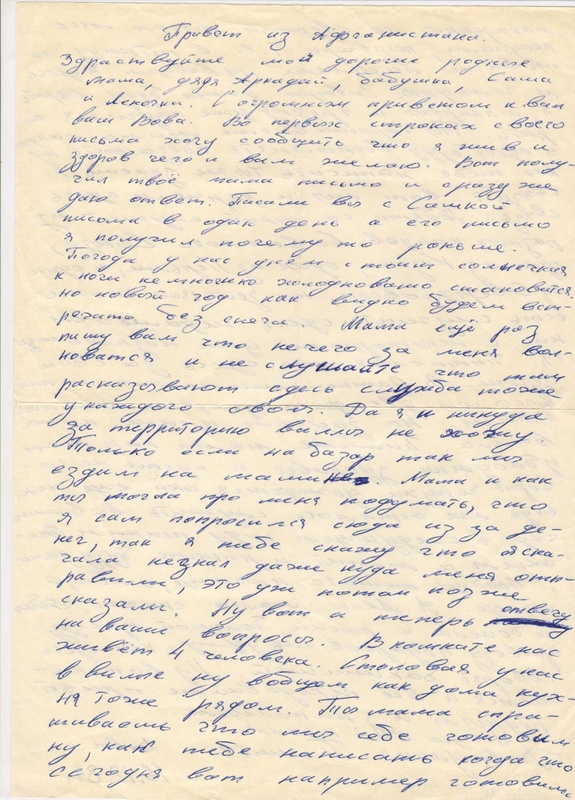 Привет из Афганистана.
Здраствуйте мои дорогие родные
мама, дядя Аркадий, бабушка, Саша
и Леночка. С огромным приветом к вам
ваш Вова. Во первых строках своего
письма хочу сообщить что я жив и
здоров чего и вам желаю. Вот полу-
чил твоё мама письмо и сразу же
даю ответ. Писали вы с Сашкой
письма в один день а его письмо
я получил почему то раньше.
Погода у нас днём стоит солнечная
к ночи немножко холодновато становится.
но новый год как видно будем вст-
речать без снега. Мама ещё раз
пишу вам что нечего за меня вол-
новатся и не слушайте что там
расказывают здесь служба тоже
у каждого своя. Да я и никуда
за территорию виллы не хожу.
Только если на базар так мы
ездим на машине. Мама и как
ты могла про меня подумать, что
я сам попросился сюда из за де-
нег, так я тебе скажу что я сна-
чала незнал даже куда меня отп-
равили, это уж потом позже
сказали. Ну вот а теперь отвечу
на ваши вопросы. В комнате нас
живёт 4 человека. Столовая у нас
в вилле ну вобщем как дома кух-
ня тоже рядом. Ты мама спра-
шиваешь что мы себе готовим
ну, как тебе написать когда что
сегодня вот например готовили